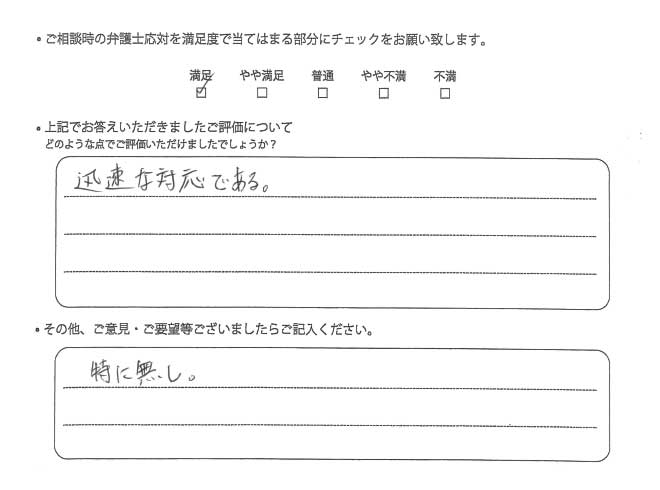 ・ご相談時の弁護士応対を満足度で当てはまる部分にチェックをお願い致します。
満足 やや満足 普通 やや不満 不満
☑ ☐ ☐ ☐ ☐
・上記でお答えいただきましたご評価について
どのような点でご評価いただけましたでしょうか？
迅速な対応である。
・その他、ご意見・ご要望等ございましたらご記入ください。
特に無し。